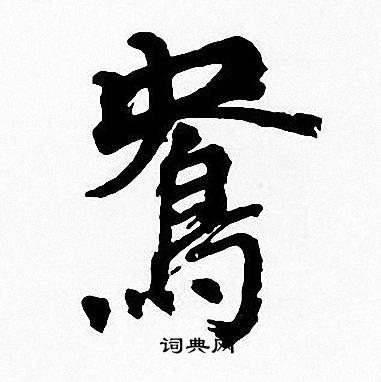 鴦
词典网